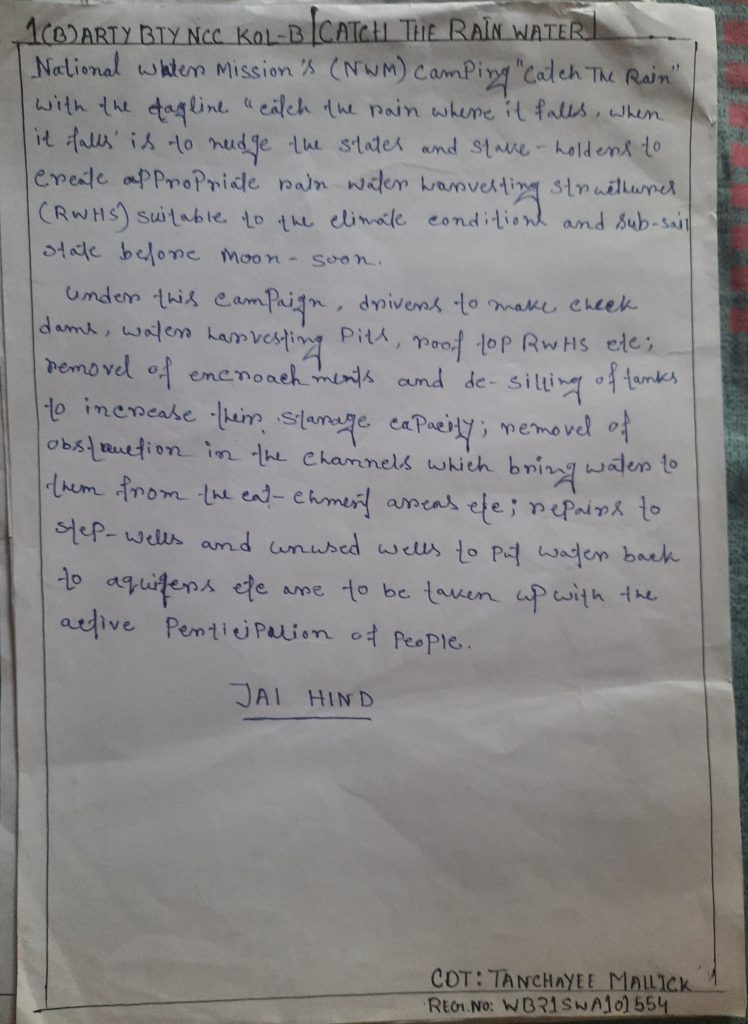 1(B) ARTY BTY NCC KOL-B | CATCH THE RAIN WATER |
National Water Mission's (NWM) Camping "Catch The Rain"
with the tagline "catch the rain where it falls, when
it falls' is to nudge the states and stake-holders to
create appropriate rain water harvesting structhures
(RWHS) suitable to the climate conditions and sub-sail
state before Moon-soon.
Under this campaign, drivers to make check
dams, water harvesting Pits, roof top RWHS etc;
removel of encroachments and de-silting of tanks
to increase their starage capacity; removel of
obstruction in the channels which bring water to
them from the cat-chment areas etc; repairs to
step-wells and unused wells to put water back
to aquifers etc are to be taken up with the
active Penticipation of People.
JAI HIND
CDT: TANCHAYEE MALLICK
REGI.NO: WB21SWA101554